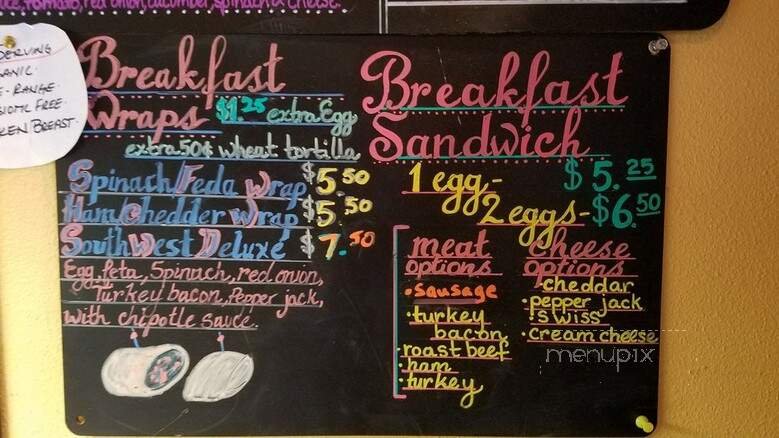 tomato, red onion, cucumber, spinach & cheese.
Breakfast
Wraps $1.25 extra Egg
extra 50¢ wheat tortilla
Spinach/Feda Wrap $5.50
Ham/Chedder Wrap $5.50
SouthWest Deluxe $7.50
Egg, Feta, Spinach, red onion,
Turkey bacon, Pepper jack,
with chipotle sauce.
Breakfast
Sandwich
1 egg- $5.25
2 eggs- $6.50
meat
options
• sausage
• turkey
bacon
• roast beef
• ham
• turkey
cheese
options
• cheddar
• pepper jack
• swiss
• cream cheese
menupix